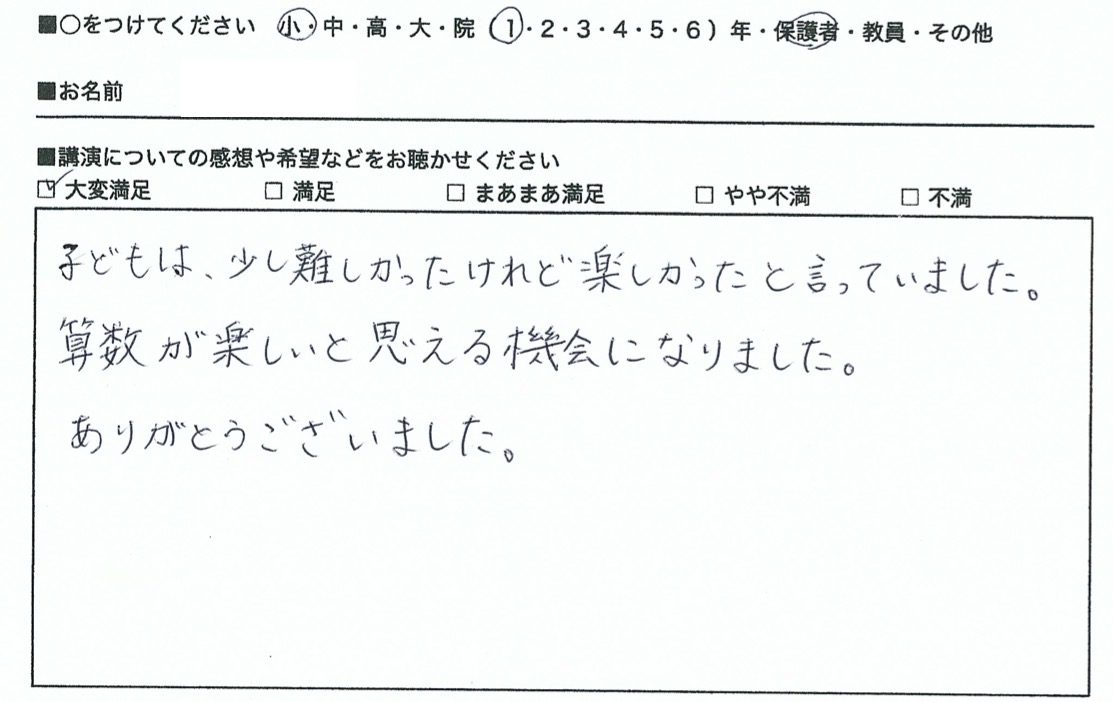 ■○をつけてください 小・中・高・大・院（1・2・3・4・5・6）年・保護者・教員・その他
■お名前
■講演についての感想や希望などをお聴かせください
☑ 大変満足 □ 満足 □ まあまあ満足 □ やや不満 □ 不満
子どもは、少し難しかったけれど楽しかったと言っていました。
算数が楽しいと思える機会になりました。
ありがとうございました。